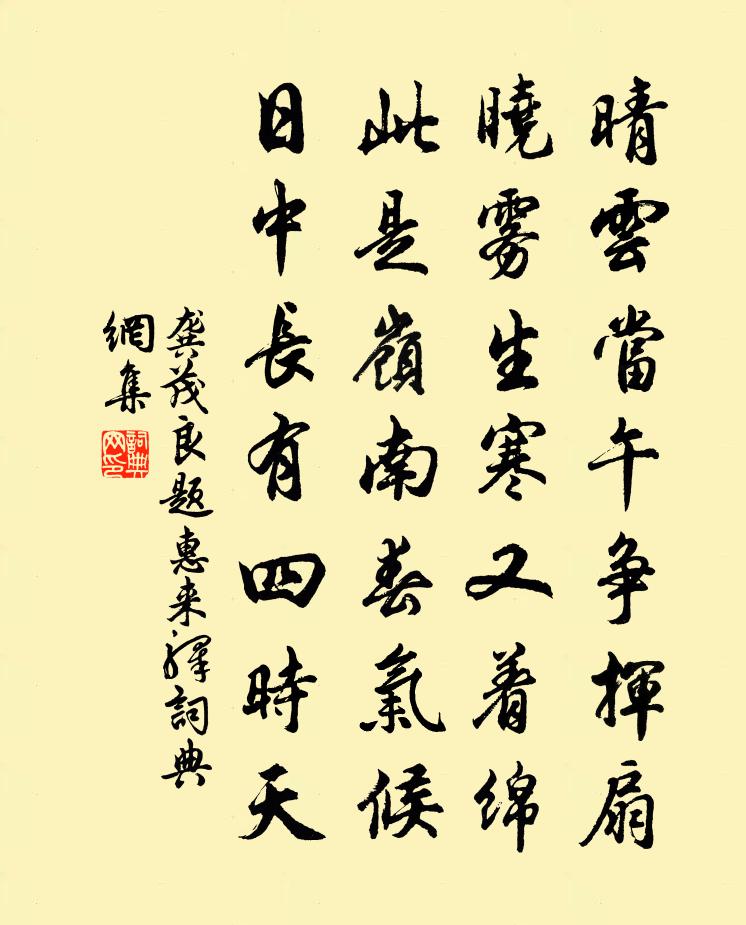 晴雲當午争揮扇
曉霧生寒又着綿
此是嶺南春氣候
日中長有四時天
龚茂良题惠来驛詞典
網集
詞典
网印